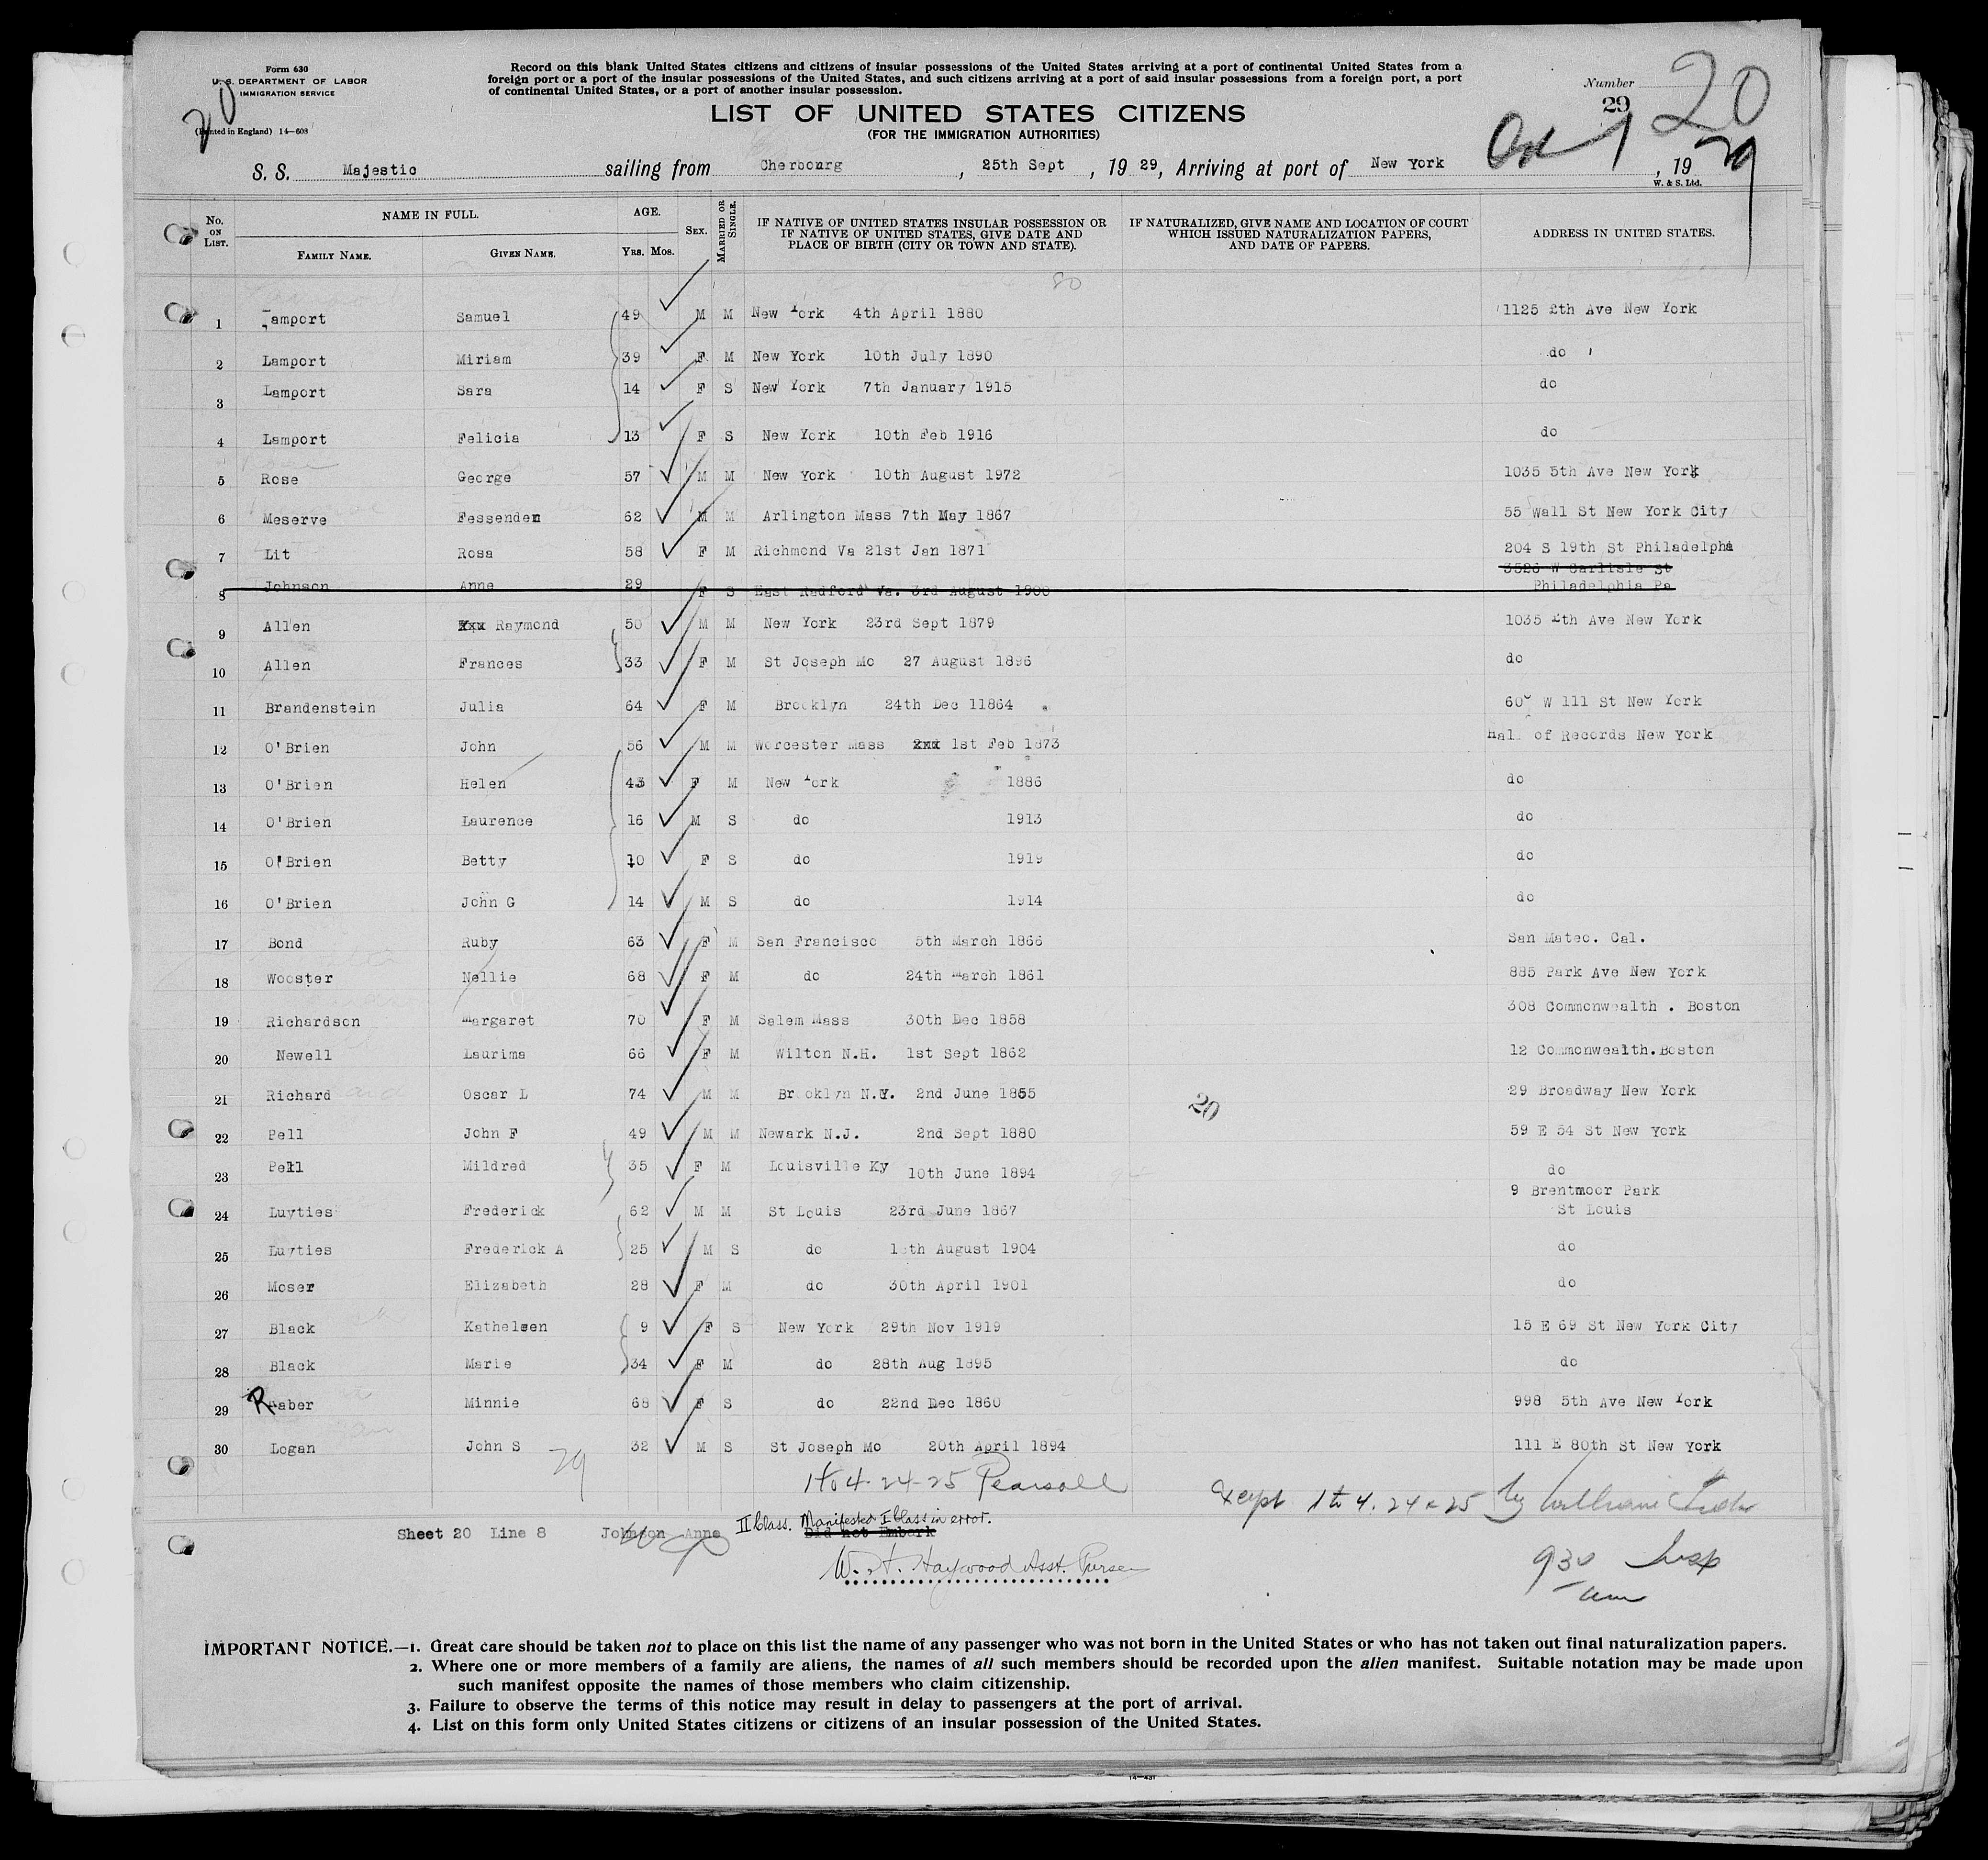 Form 630
U. S. DEPARTMENT OF LABOR
IMMIGRATION SERVICE
(Printed in England) 14—608
20
Record on this blank United States citizens and citizens of insular possessions of the United States arriving at a port of continental United States from a
foreign port or a port of the insular possessions of the United States, and such citizens arriving at a port of said insular possessions from a foreign port, a port
of continental United States, or a port of another insular possession.
LIST OF UNITED STATES CITIZENS
(FOR THE IMMIGRATION AUTHORITIES)
Number 20
29
S. S. Majestic sailing from Cherbourg, 25th Sept, 19 29, Arriving at port of New York Oct 1, 19 29
W. & S. Ltd.
No. ON LIST. NAME IN FULL. AGE. SEX. MARRIED OR SINGLE. IF NATIVE OF UNITED STATES INSULAR POSSESSION OR IF NATIVE OF UNITED STATES, GIVE DATE AND PLACE OF BIRTH (CITY OR TOWN AND STATE). IF NATURALIZED, GIVE NAME AND LOCATION OF COURT WHICH ISSUED NATURALIZATION PAPERS, AND DATE OF PAPERS. ADDRESS IN UNITED STATES.
FAMILY NAME. GIVEN NAME. YRS. MOS.
80
1 Lamport Samuel 49 M M New York 4th April 1880 1125 5th Ave New York
2 Lamport Miriam 39 F M New York 10th July 1890 do
3 Lamport Sara 14 F S New York 7th January 1915 do
4 Lamport Felicia 13 F S New York 10th Feb 1916 do
5 Rose George 57 M M New York 10th August 1972 1035 5th Ave New York
6 Meserve Fessenden 62 M M Arlington Mass 7th May 1867 55 Wall St New York City
7 Lit Rosa 58 F M Richmond Va 21st Jan 1871 204 S 19th St Philadelpha
3526 W Carlisle St
8 Johnson Anne 29 F S East Radford Va. 3rd August 1900 Philadelphia Pa
9 Allen xxx Raymond 50 M M New York 23rd Sept 1879 1035 5th Ave New York
10 Allen Frances 33 F M St Joseph Mo 27 August 1896 do
11 Brandenstein Julia 64 F M Brooklyn 24th Dec 11864 600 W 111 St New York
12 O'Brien John 56 M M Worcester Mass xxx 1st Feb 1873 Hall of Records New York
13 O'Brien Helen 43 F M New York 1886 do
14 O'Brien Laurence 16 M S do 1913 do
15 O'Brien Betty 10 F S do 1919 do
16 O'Brien John G 14 M S do 1914 do
17 Bond Ruby 63 F M San Francisco 5th March 1866 San Mateo. Cal.
18 Wooster Nellie 68 F M do 24th March 1861 885 Park Ave New York
19 Richardson Margaret 70 F M Salem Mass 30th Dec 1858 308 Commonwealth . Boston
20 Newell Laurima 66 F M Wilton N.H. 1st Sept 1862 12 Commonwealth.Boston
21 Richard Oscar L 74 M M Brooklyn N.Y. 2nd June 1855 29 Broadway New York
20
22 Pell John F 49 M M Newark N.J. 2nd Sept 1880 59 E 54 St New York
23 Pell Mildred 35 F M Louisville Ky 10th June 1894 do
24 Luyties Frederick 62 M M St Louis 23rd June 1867 9 Brentmoor Park
St Louis
25 Luyties Frederick A 25 M S do August 1904 do
26 Moser Elizabeth 28 F M do 30th April 1901 do
27 Black Katheleen 9 F S New York 29th Nov 1919 15 E 69 St New York City
28 Black Marie 34 F M do 28th Aug 1895 do
29 Raber Minnie 68 F S do 22nd Dec 1860 998 5th Ave New York
30 Logan John S 32 M S St Joseph Mo 20th April 1894 111 E 80th St New York
29
1 to 4. 24-25 Pearsall
Except 1 to 4. 24 & 25 by William
Sheet 20 Line 8 Johnson Anne II Class. Manifested I Class in error.
Did not Embark
W. H. Haywood Asst. Purser
930 Insp
am
IMPORTANT NOTICE.—1. Great care should be taken not to place on this list the name of any passenger who was not born in the United States or who has not taken out final naturalization papers.
2. Where one or more members of a family are aliens, the names of all such members should be recorded upon the alien manifest. Suitable notation may be made upon
such manifest opposite the names of those members who claim citizenship.
3. Failure to observe the terms of this notice may result in delay to passengers at the port of arrival.
4. List on this form only United States citizens or citizens of an insular possession of the United States.
14—431